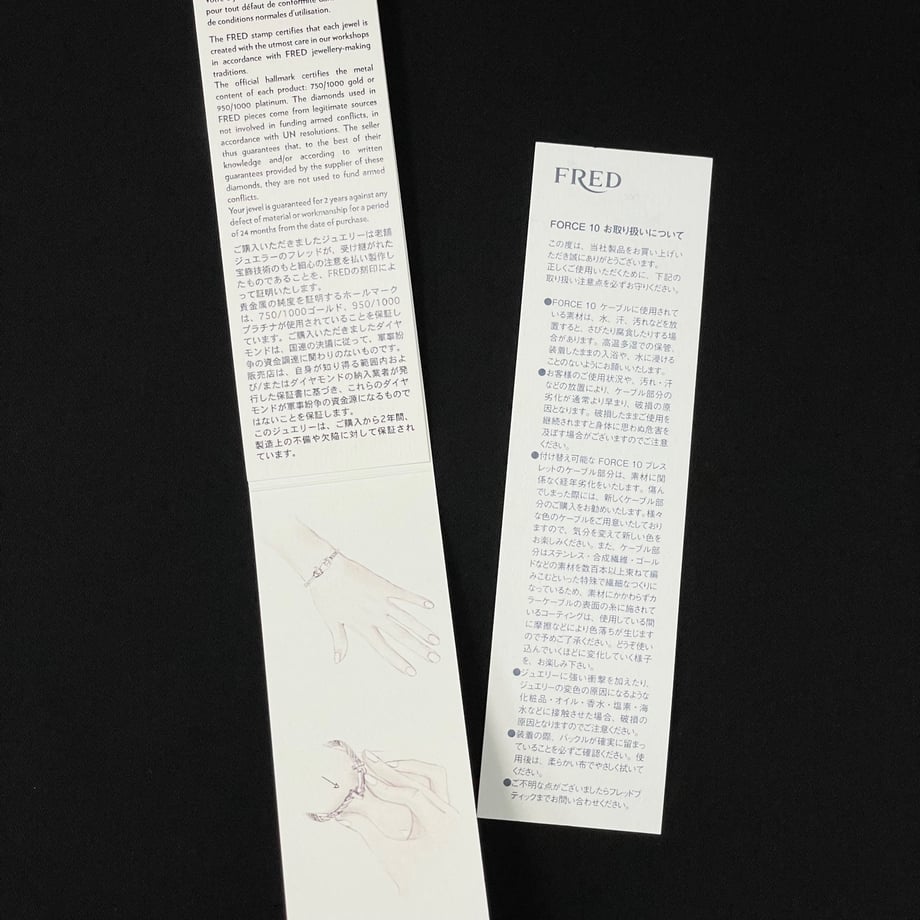 pour tout défaut de conformité dans
de conditions normales d'utilisation.
The FRED stamp certifies that each jewel is
created with the utmost care in our workshops
in accordance with FRED jewellery-making
traditions.
The official hallmark certifies the metal
content of each product: 750/1000 gold or
950/1000 platinum. The diamonds used in
FRED pieces come from legitimate sources
not involved in funding armed conflicts, in
accordance with UN resolutions. The seller
thus guarantees that, to the best of their
knowledge and/or according to written
guarantees provided by the supplier of these
diamonds, they are not used to fund armed
conflicts.
Your jewel is guaranteed for 2 years against any
defect of material or workmanship for a period
of 24 months from the date of purchase.
ご購入いただきましたジュエリーは老舗
ジュエラーのフレッドが、受け継がれた
宝飾技術のもと細心の注意を払い製作し
たものであることを、FREDの刻印によ
って証明いたします。
貴金属の純度を証明するホールマーク
は、750/1000ゴールド、950/1000
プラチナが使用されていることを保証し
ています。ご購入いただきましたダイヤ
モンドは、国連の決議に従って、軍事紛
争の資金調達に関わりのないものです。
販売店は、自身が知り得る範囲内およ
び/またはダイヤモンドの納入業者が発
行した保証書に基づき、これらのダイヤ
モンドが軍事紛争の資金源になるもので
はないことを保証します。
このジュエリーは、ご購入から2年間、
製造上の不備や欠陥に対して保証され
ています。
FRED
FORCE 10 お取り扱いについて
この度は、当社製品をお買い上げい
ただき誠にありがとうございます。
正しくご使用いただくために、下記の
取り扱い注意点を必ずお守りください。
●FORCE 10 ケーブルに使用されて
いる素材は、水、汗、汚れなどを放
置すると、さびたり腐食したりする場
合があります。高温多湿での保管、
装着したままの入浴や、水に浸ける
ことのないようにお願いいたします。
●お客様のご使用状況や、汚れ・汗
などの放置により、ケーブル部分の
劣化が通常より早まり、破損の原
因となります。破損したままご使用を
継続されますと身体に思わぬ危害を
及ぼす場合がございますのでご注意
ください。
●付け替え可能な FORCE 10 ブレス
レットのケーブル部分は、素材に関
係なく経年劣化をいたします。傷ん
でしまった際には、新しくケーブル部
分のご購入をお勧めいたします。様々
な色のケーブルをご用意いたしており
ますので、気分を変えて新しい色を
お楽しみください。また、ケーブル部
分はステンレス・合成繊維・ゴール
ドなどの素材を数百本以上束ねて編
みこむといった特殊で繊細なつくりに
なっているため、素材にかかわらずカ
ラーケーブルの表面の糸に施されて
いるコーティングは、使用している間
に摩擦などにより色落ちが生じます
ので予めご了承ください。どうぞ使い
込んでいくほどに変化していく様子
を、お楽しみ下さい。
●ジュエリーに強い衝撃を加えたり、
ジュエリーの変色の原因になるような
化粧品・オイル・香水・塩素・海
水などに接触させた場合、破損の
原因となりますのでご注意ください。
●装着の際、バックルが確実に留まっ
ていることを必ずご確認ください。使
用後は、柔らかい布でやさしく拭いて
ください。
●ご不明な点がございましたらフレッドブ
ティックまでお問い合わせください。